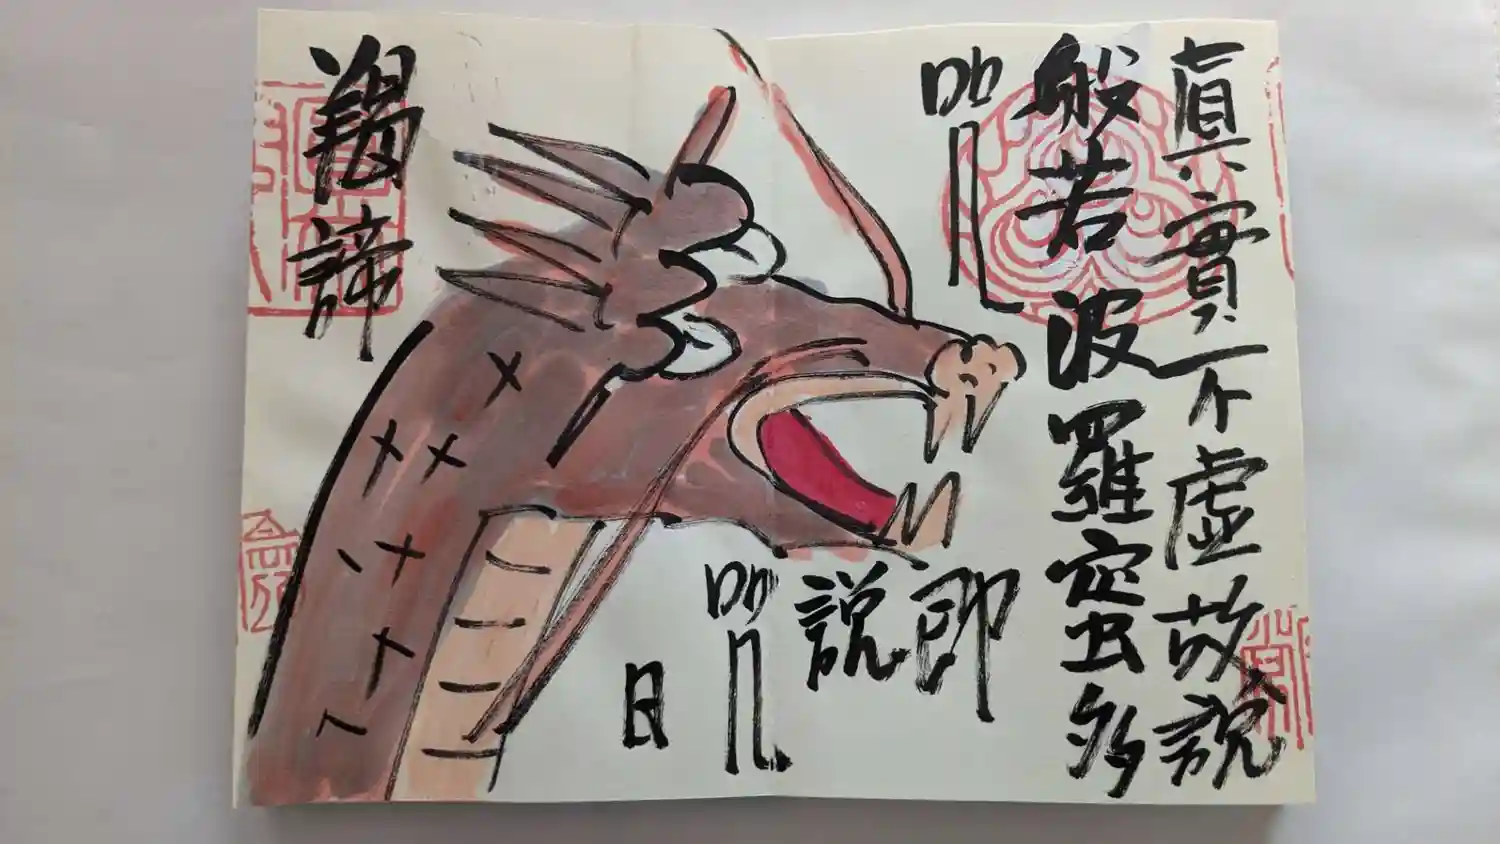 眞實不虛故說
般若波羅蜜多
咒
即
說
咒
曰
揭諦